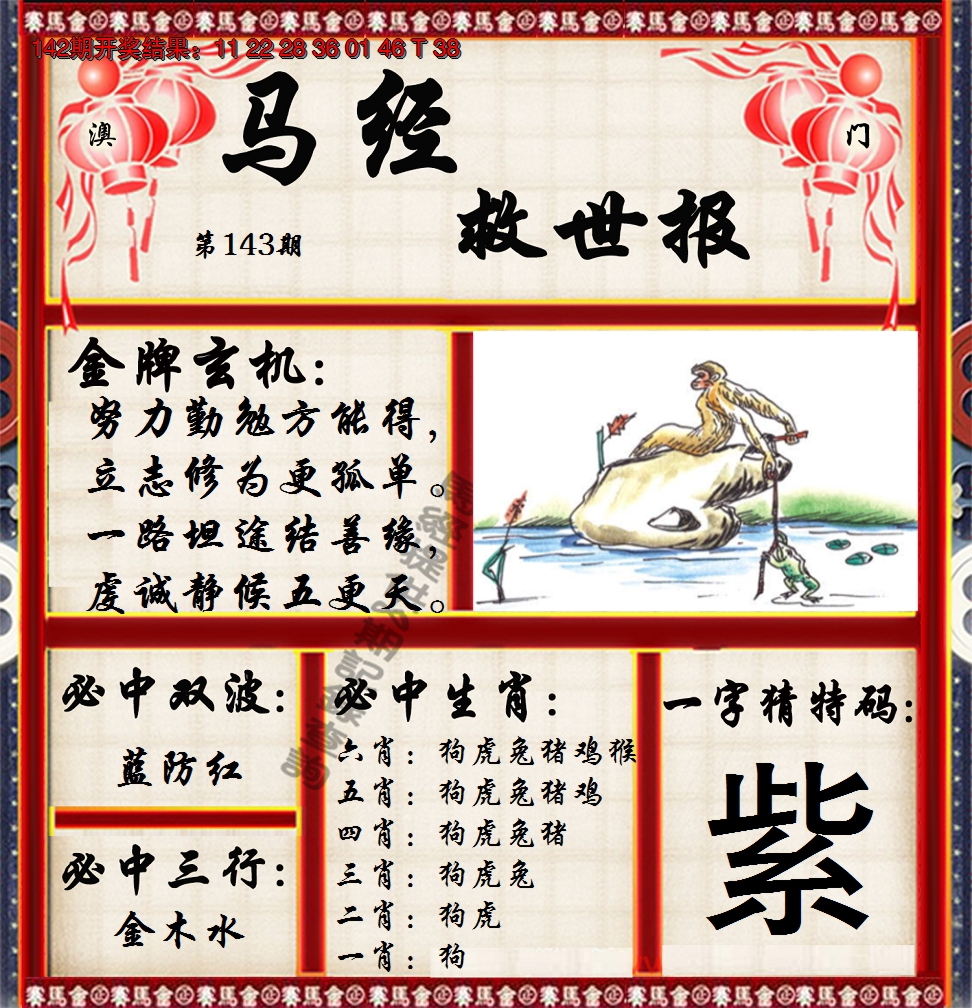 賽馬會
142期开奖结果：11 22 28 36 01 46 T 38
澳
门
马经
救世报
第143期
金牌玄机：
努力勤勉方能得，
立志修为更孤单。
一路坦途结善缘，
虔诚静候五更天。
必中双波：
蓝防红
必中三行：
金木水
必中生肖：
六肖：狗虎兔猪鸡猴
五肖：狗虎兔猪鸡
四肖：狗虎兔猪
三肖：狗虎兔
二肖：狗虎
一肖：狗
一字猜特码：
紫